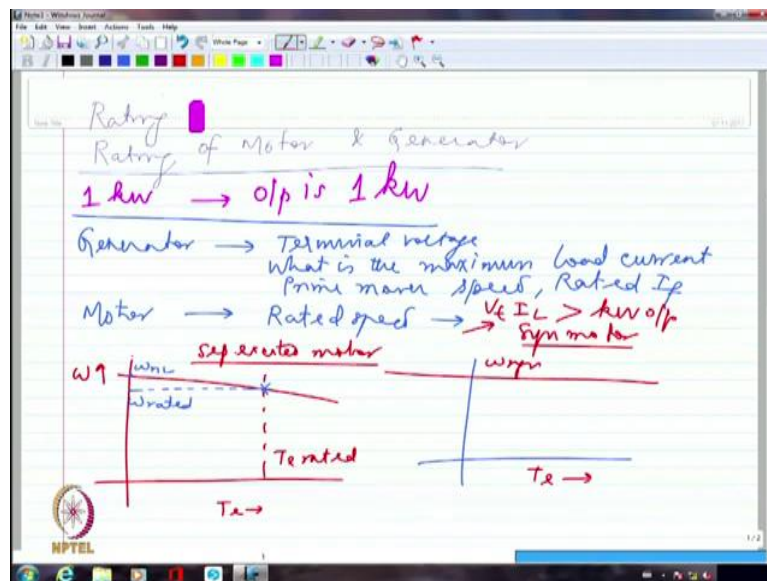 Note1 - Windows Journal
File Edit View Insert Actions Tools Help
Whole Page
B I
Note Title
Rating
Rating of Motor & Generator
1 kW → o/p is 1 kW
Generator → Terminal voltage
What is the maximum load current
Prime mover speed, Rated If
Motor → Rated speed → Vt IL > kW o/p
Syn motor
sep excited motor
ω↑ ωNL
ωrated
Te rated
Te→
ωsyn
Te →
NPTEL
1/2